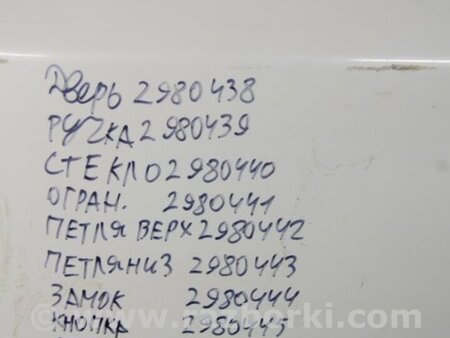 Дверь 2980438
РУЧКА 2980439
СТЕКЛО 2980440
ОГРАН. 2980441
ПЕТЛЯ ВЕРХ 2980442
ПЕТЛЯ НИЗ 2980443
ЗАМОК 2980444
КНОПКА 2980445
www.razborki.com